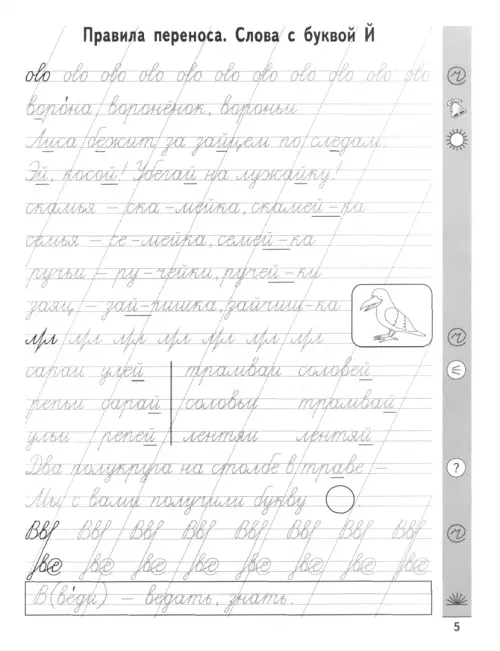 Правила переноса. Слова с буквой Й
ово ово ово ово ово ово ово ово ово ово ово
ворóна, воронёнок, вороньи
Лиса бежит за зайцем по следам.
Эй, косой! Убегай на лужайку!
скамья – ска-мейка, скамей-ка
семья – се-мейка, семей-ка
ручьи – ру-чейки, ручей-ки
заяц – зай-чишка, зайчиш-ка
сараи улей трамваи соловей
репьи сарай соловьи трамвай
ульи репей лентяи лентяй
Два полукруга на столбе в траве –
Мы с вами получили букву
В (вéди) – ведать, знать.
?
5